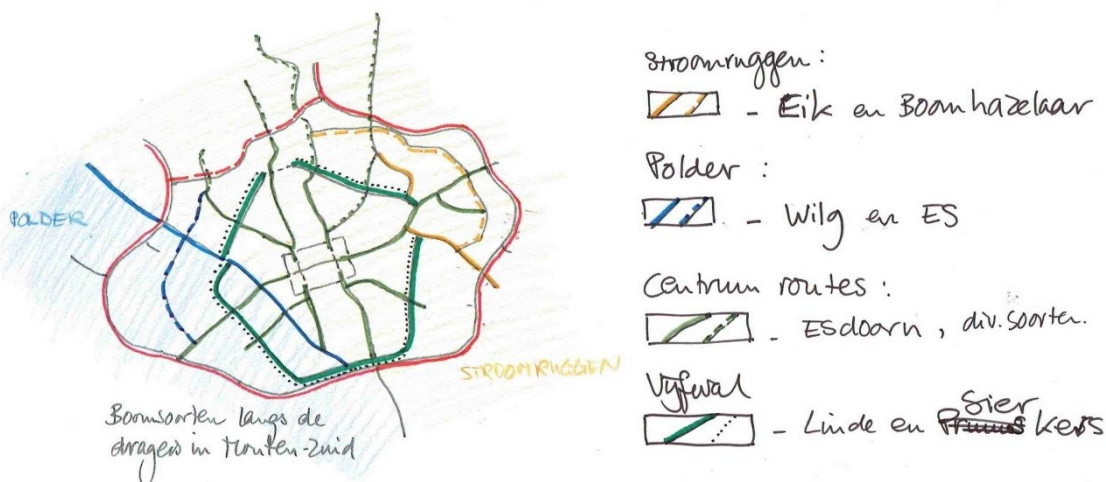 POLDER
STROOMRUGGEN
Boomsoorten langs de
dragers in Houten-Zuid
stroomruggen:
- Eik en Boomhazelaar
Polder:
- Wilg en ES
Centrum routes:
- Esdoorn, div. soorten.
Vijfwal
Sier
- Linde en Prunus kers